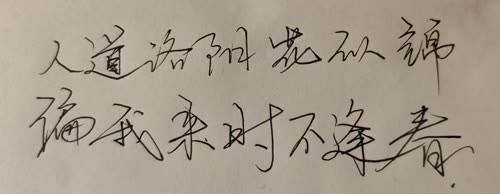 人道洛阳花似锦
偏我来时不逢春.